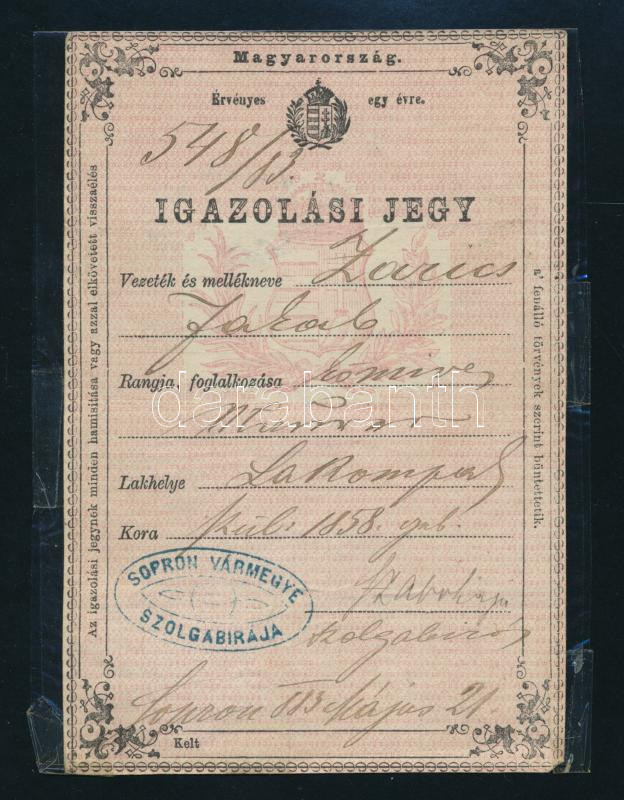 Magyarország.
Érvényes egy évre.
548/83.
IGAZOLÁSI JEGY
Vezeték és mellékneve Zarics
Jakab
Rangja, foglalkozása
darabanth
Maurer
Lakhelye Lakompak
Kora 1858. geb.
SOPRON VÁRMEGYE
SZOLGABIRÁJA
szolgabiró
Sopron 883 Május 21
Kelt
Az igazolási jegynek minden hamisítása vagy azzal elkövetett visszaélés
a' fenálló törvények szerint büntettetik.